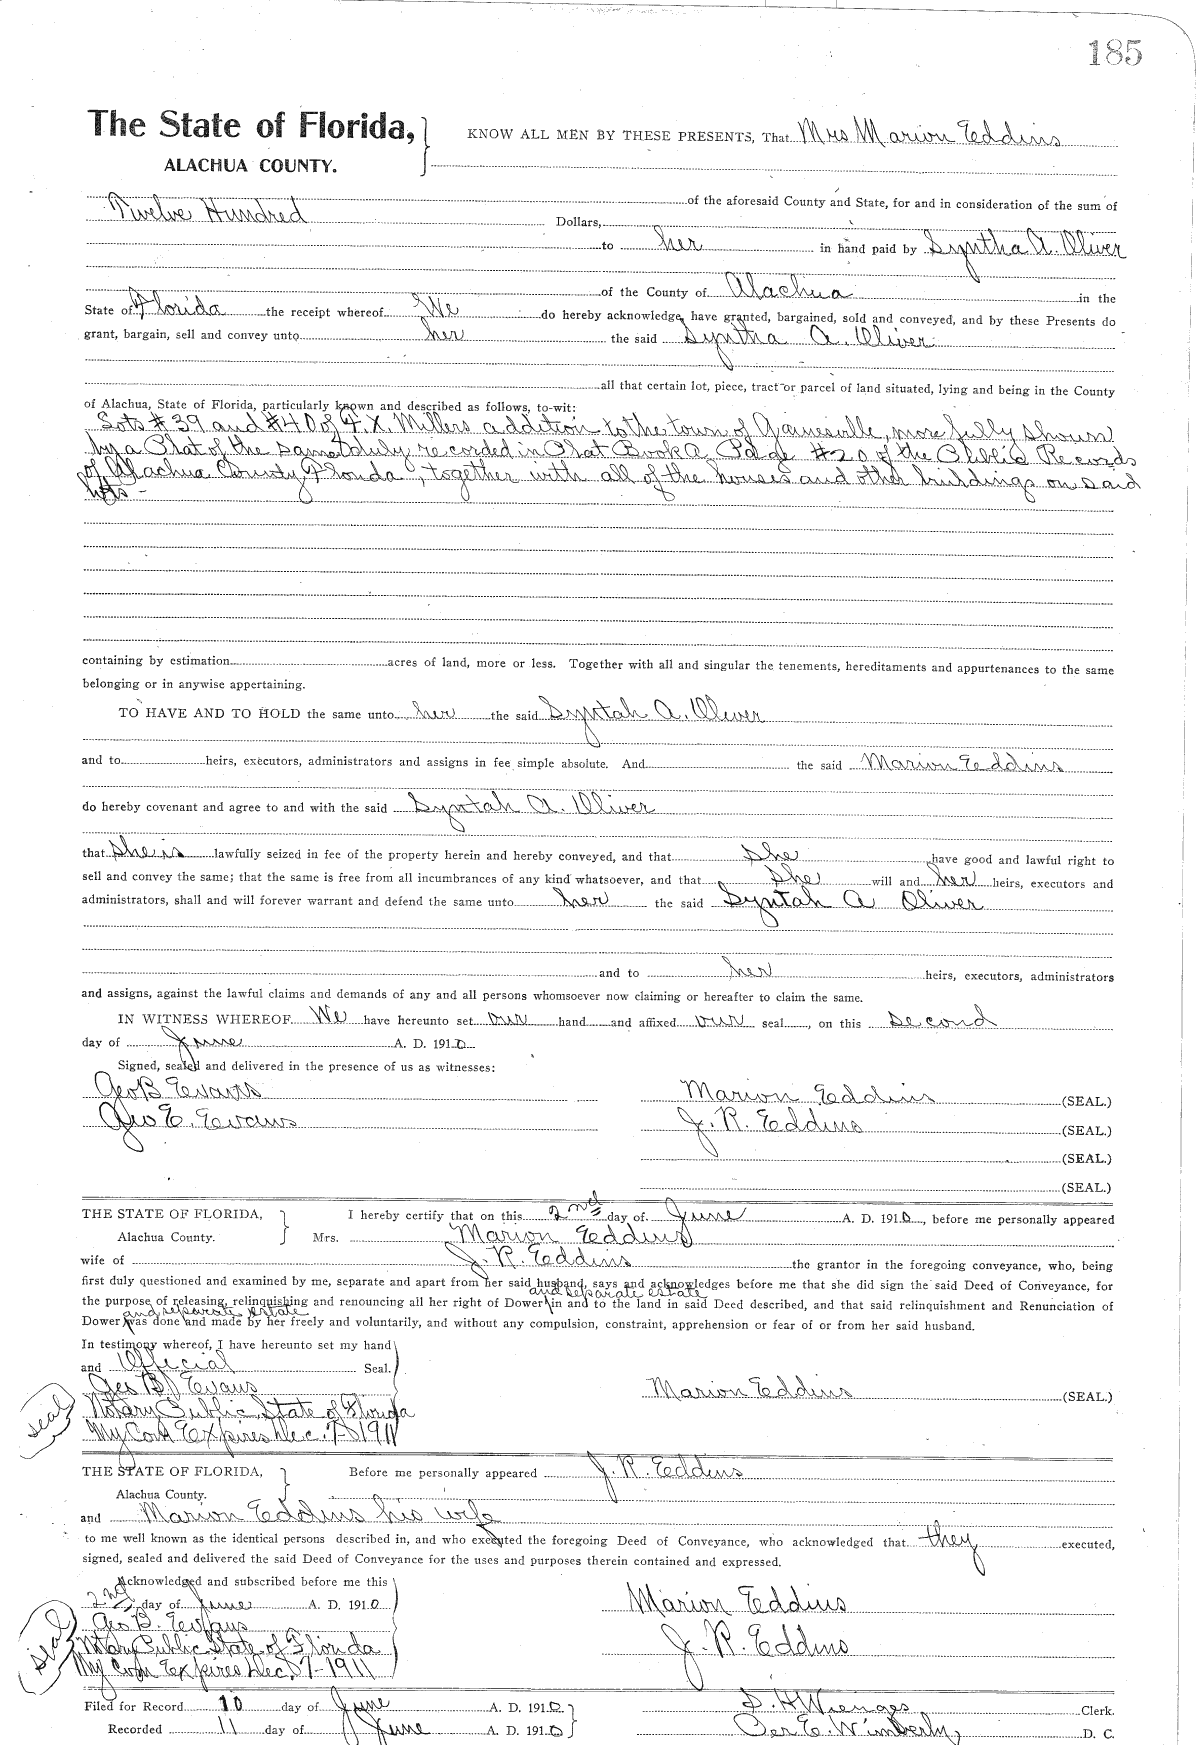 185
The State of Florida,
ALACHUA COUNTY.
KNOW ALL MEN BY THESE PRESENTS, That Mrs Marion Eddins
of the aforesaid County and State, for and in consideration of the sum of
Twelve Hundred Dollars,
to her in hand paid by Syntha A. Oliver
of the County of Alachua in the
State of Florida the receipt whereof We do hereby acknowledge, have granted, bargained, sold and conveyed, and by these Presents do
grant, bargain, sell and convey unto her the said Syntha A. Oliver
all that certain lot, piece, tract or parcel of land situated, lying and being in the County
of Alachua, State of Florida, particularly known and described as follows, to-wit:
Lots #39 and #40 of F.X. Millers addition to the town of Gainesville, more fully shown
by a Plat of the same duly recorded in Plat Book A Page #20 of the Public Records
of Alachua County, Florida, together with all of the houses and other buildings on said
lots -
containing by estimation acres of land, more or less. Together with all and singular the tenements, hereditaments and appurtenances to the same
belonging or in anywise appertaining.
TO HAVE AND TO HOLD the same unto her the said Syntah A. Oliver
and to heirs, executors, administrators and assigns in fee simple absolute. And the said Marion Eddins
do hereby covenant and agree to and with the said Syntah A. Oliver
that she is lawfully seized in fee of the property herein and hereby conveyed, and that she have good and lawful right to
sell and convey the same; that the same is free from all incumbrances of any kind whatsoever, and that she will and her heirs, executors and
administrators, shall and will forever warrant and defend the same unto her the said Syntah A Oliver
and to her heirs, executors, administrators
and assigns, against the lawful claims and demands of any and all persons whomsoever now claiming or hereafter to claim the same.
IN WITNESS WHEREOF We have hereunto set our hand and affixed our seal, on this second
day of June A. D. 1910
Signed, sealed and delivered in the presence of us as witnesses:
Geo B Evans Marion Eddins (SEAL.)
Geo E. Evans J. R. Eddins (SEAL.)
(SEAL.)
(SEAL.)
THE STATE OF FLORIDA, I hereby certify that on this 2nd day of June A. D. 1910, before me personally appeared
Alachua County. Mrs. Marion Eddins
wife of J. R. Eddins the grantor in the foregoing conveyance, who, being
first duly questioned and examined by me, separate and apart from her said husband, says and acknowledges before me that she did sign the said Deed of Conveyance, for
and separate estate
the purpose of releasing, relinquishing and renouncing all her right of Dower in and to the land in said Deed described, and that said relinquishment and Renunciation of
and separate estate
Dower was done and made by her freely and voluntarily, and without any compulsion, constraint, apprehension or fear of or from her said husband.
In testimony whereof, I have hereunto set my hand
and Official Seal.
Geo B Evans Marion Eddins (SEAL.)
seal
Notary Public State of Florida
My Com Expires Dec. 7-1911
THE STATE OF FLORIDA, Before me personally appeared J. R. Eddins
Alachua County.
and Marion Eddins his wife
to me well known as the identical persons described in, and who executed the foregoing Deed of Conveyance, who acknowledged that they executed,
signed, sealed and delivered the said Deed of Conveyance for the uses and purposes therein contained and expressed.
Acknowledged and subscribed before me this
2nd day of June A. D. 1910 Marion Eddins
Geo B. Evans
seal
Notary Public State of Florida J. R. Eddins
My Com Expires Dec 7-1911
Filed for Record 10 day of June A. D. 1910 S. H Wienges Clerk.
Recorded 11 day of June A. D. 1910 Per E. Wimberly, D. C.